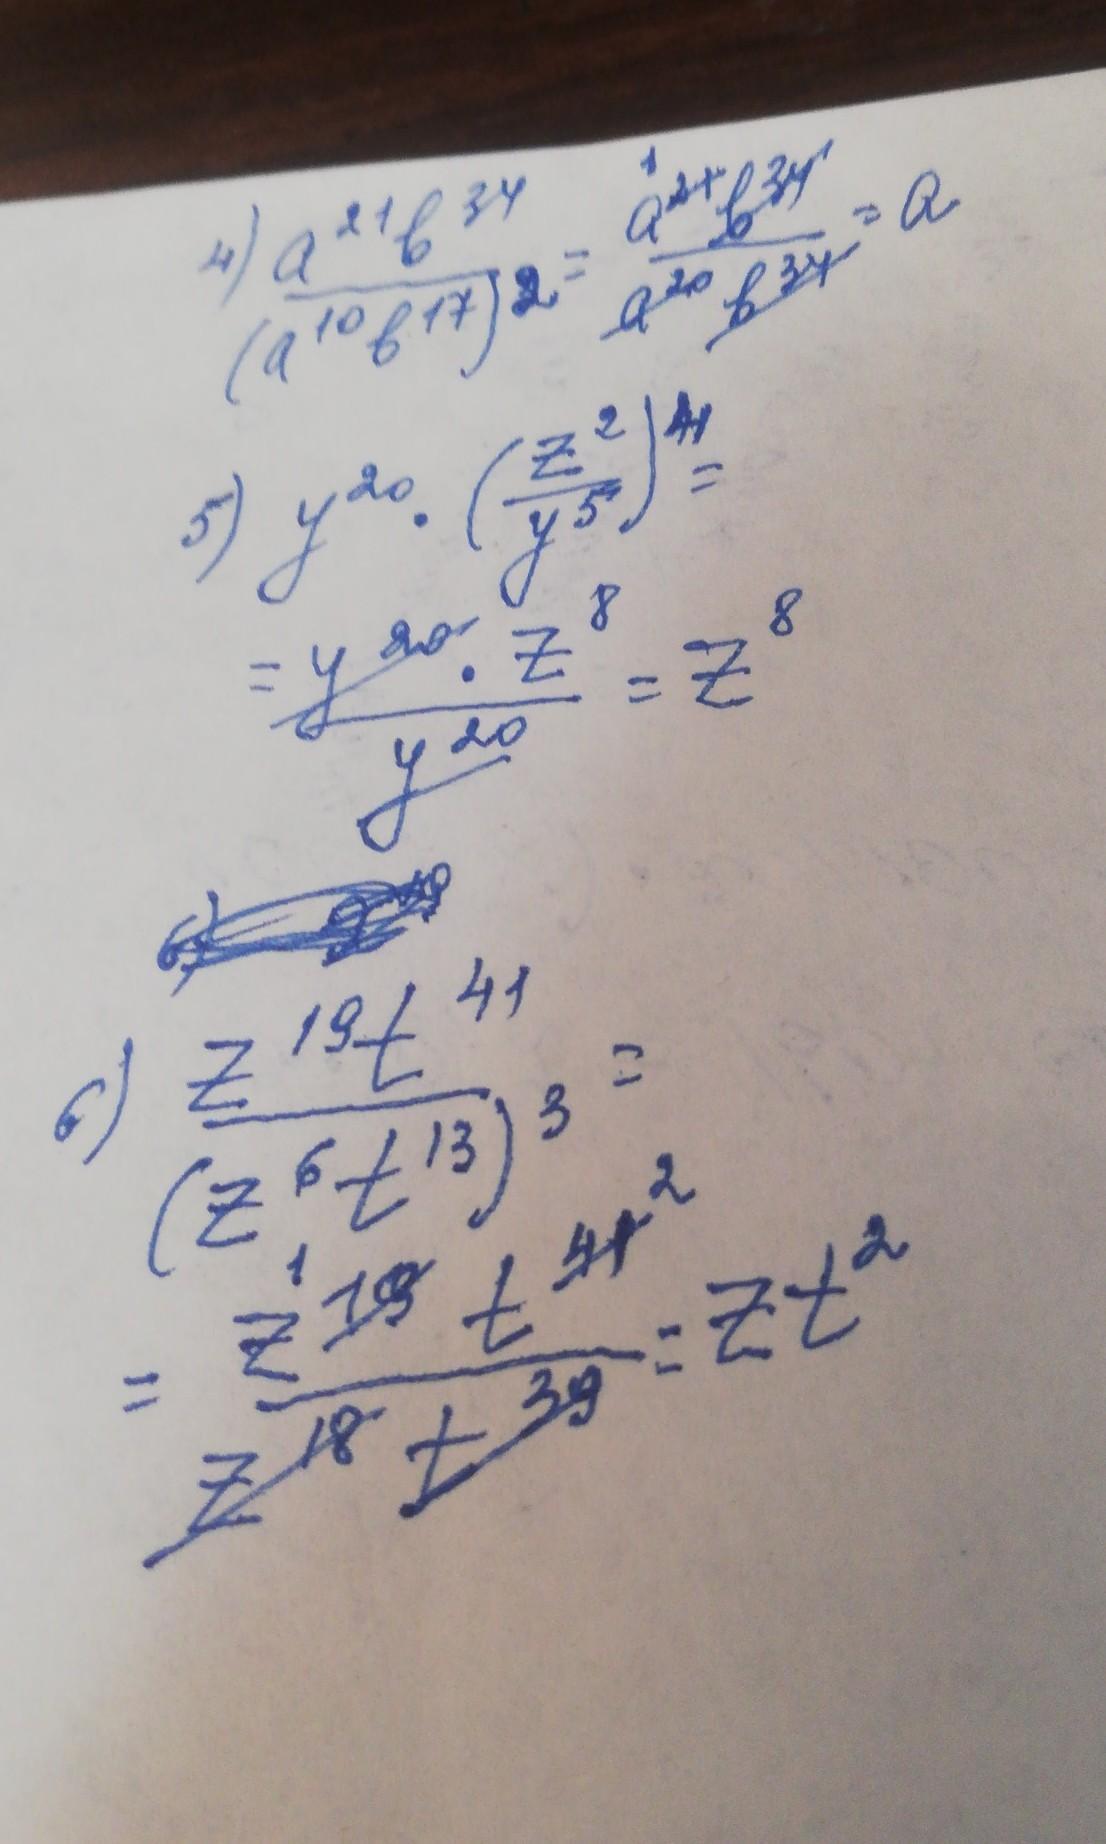 4) a²¹b³⁴/(a¹⁰b¹⁷)² = a²¹¹b³⁴/a²⁰b³⁴ = a
5) y²⁰ · (z²/y⁵)⁴ =
= y²⁰ · z⁸/y²⁰ = z⁸
6)
6) z¹⁹t⁴¹/(z⁶t¹³)³ =
= z¹⁹¹t⁴¹²/z¹⁸t³⁹ = zt²